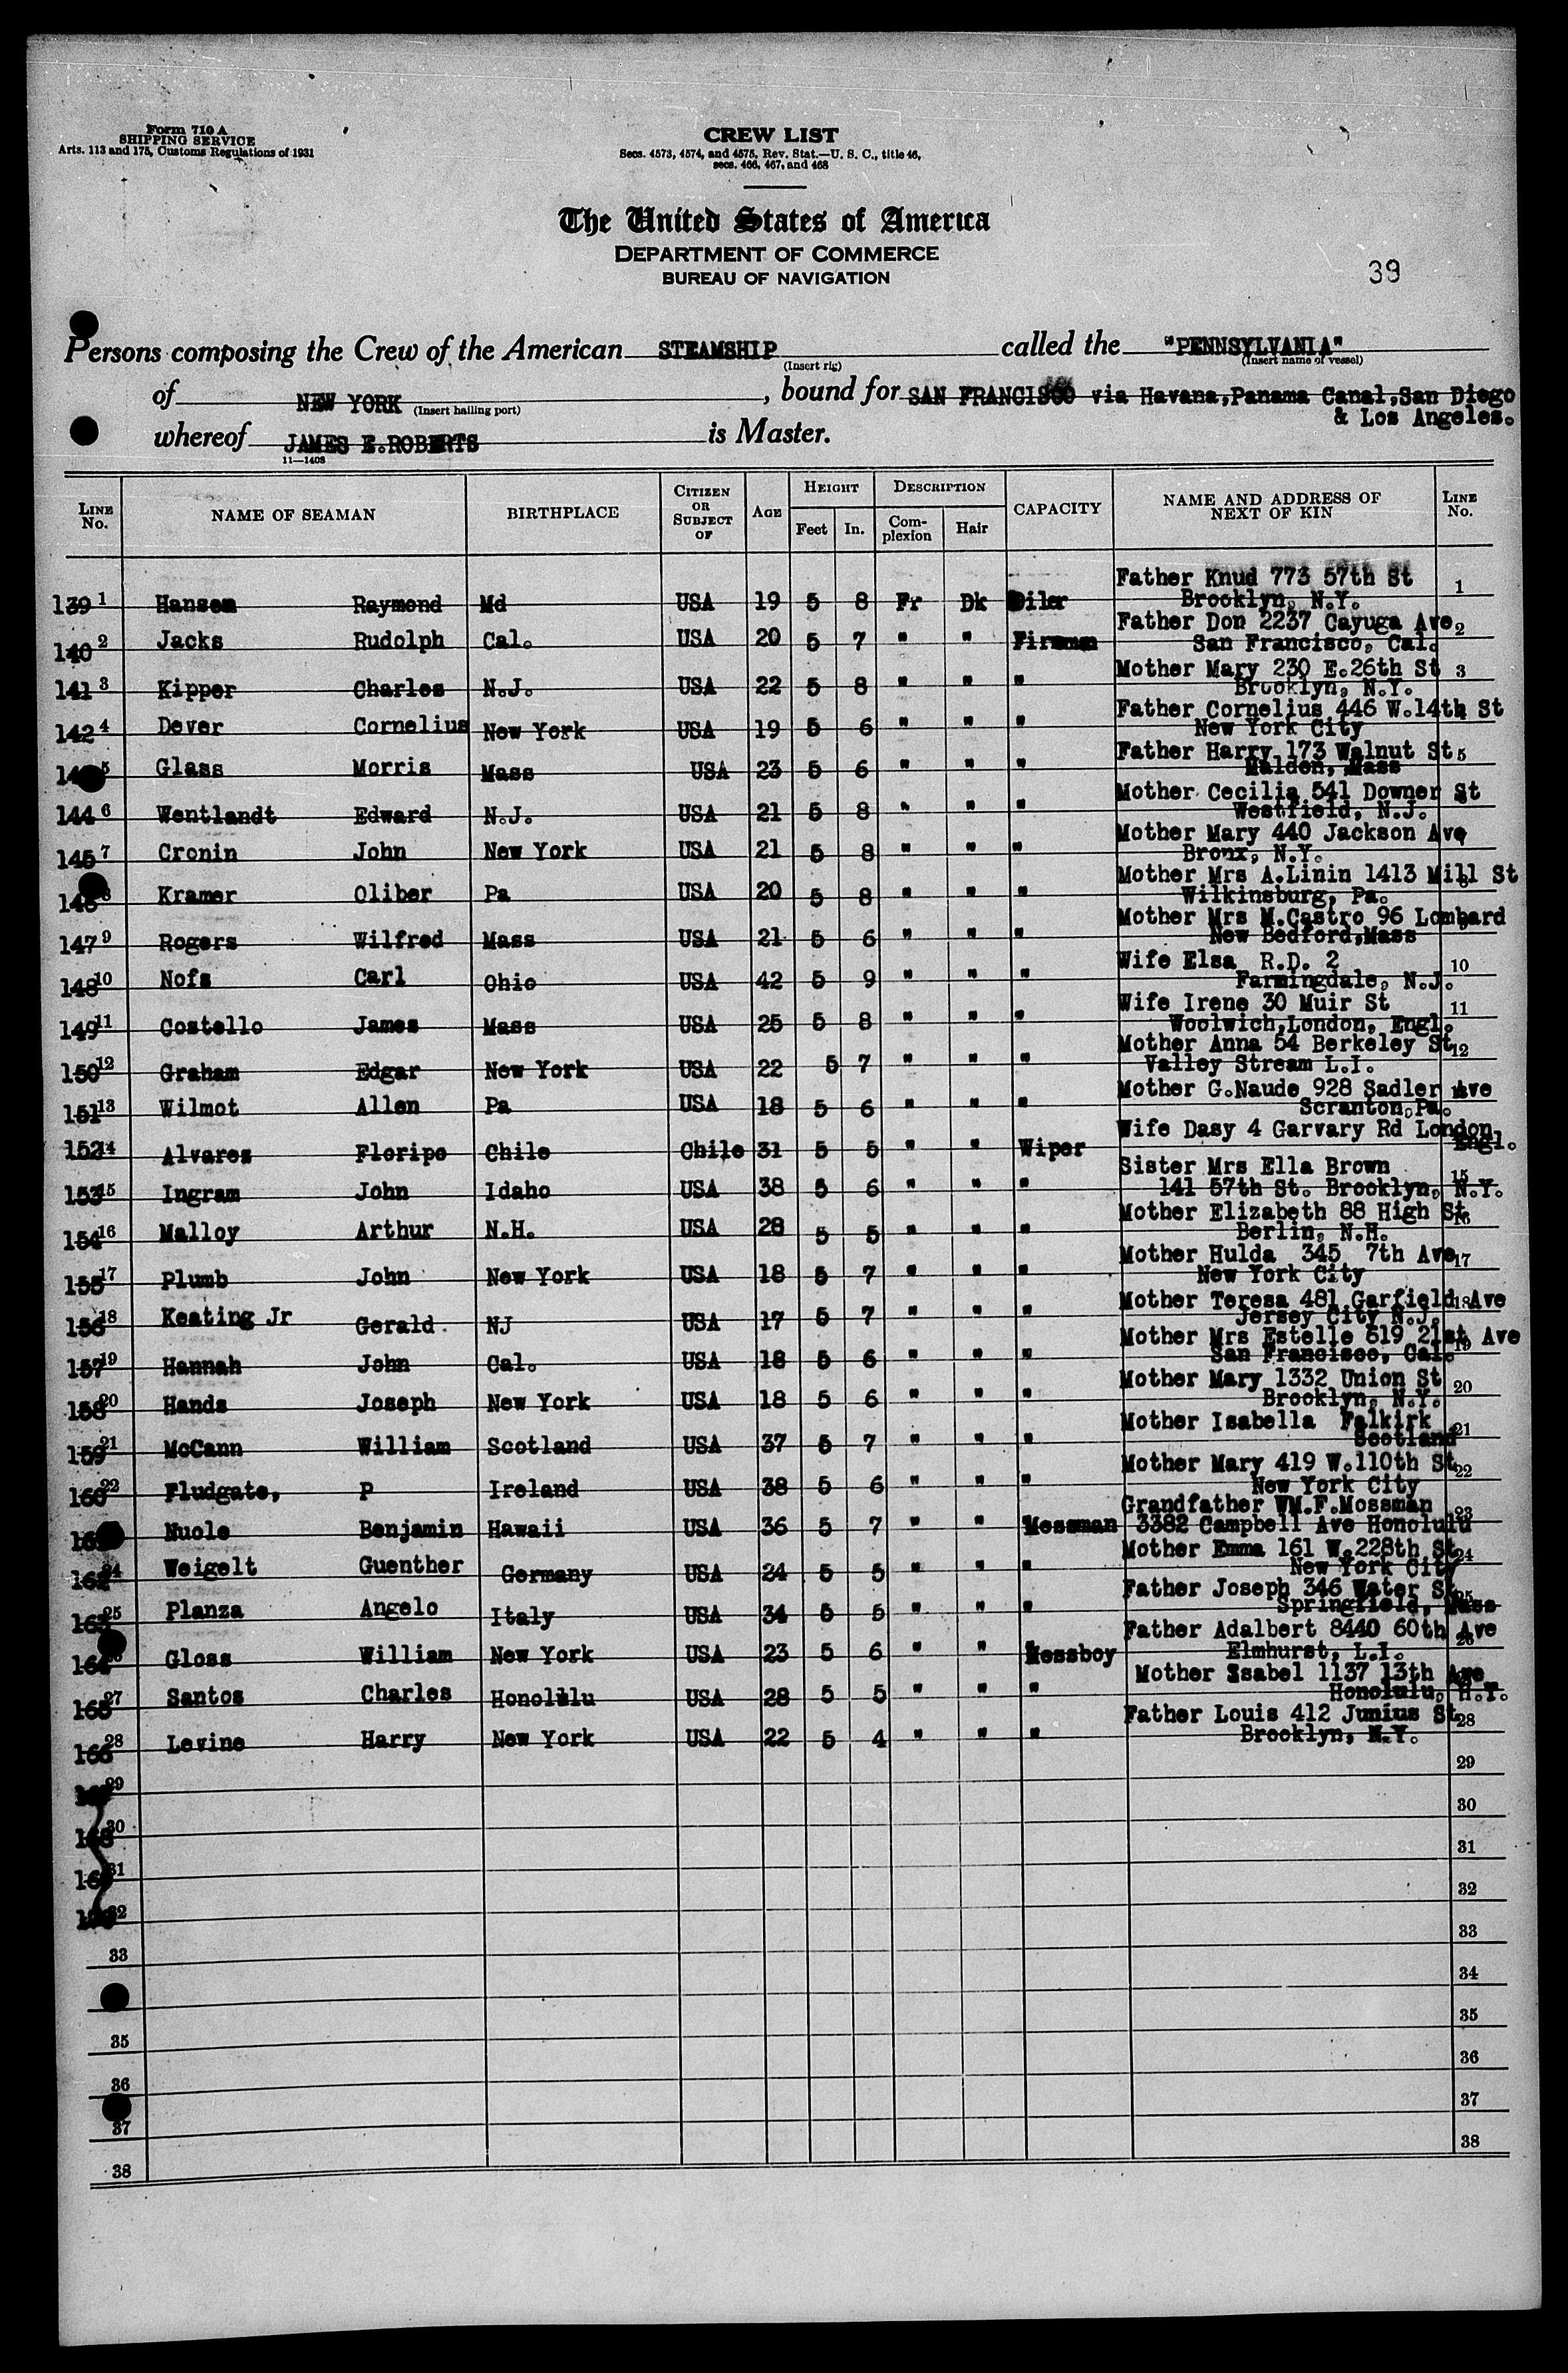 Form 710 A
SHIPPING SERVICE
Arts. 113 and 175, Customs Regulations of 1931
CREW LIST
Secs. 4573, 4574, and 4575, Rev. Stat.—U. S. C., title 46,
secs. 466, 467, and 468
The United States of America
DEPARTMENT OF COMMERCE
BUREAU OF NAVIGATION
39
Persons composing the Crew of the American STEAMSHIP called the "PENNSYLVANIA"
(Insert rig) (Insert name of vessel)
of NEW YORK (Insert hailing port), bound for SAN FRANCISCO via Havana,Panama Canal,San Diego
& Los Angeles.
whereof JAMES E.ROBERTS is Master.
11—1408
LINE No. NAME OF SEAMAN BIRTHPLACE CITIZEN OR SUBJECT OF AGE HEIGHT Feet In. DESCRIPTION Complexion Hair CAPACITY NAME AND ADDRESS OF NEXT OF KIN LINE No.
Father Knud 773 57th St
139 1 Hansen Raymond Md USA 19 5 8 Fr Dk Oiler Brooklyn, N.Y. 1
Father Don 2237 Cayuga Ave 2
140 2 Jacks Rudolph Cal. USA 20 5 7 " " Fireman San Francisco, Cal.
Mother Mary 230 E.26th St 3
141 3 Kipper Charles N.J. USA 22 5 8 " " " Brooklyn, N.Y.
Father Cornelius 446 W.14th St
142 4 Dever Cornelius New York USA 19 5 6 " " " New York City
Father Harry 173 Walnut St 5
5 Glass Morris Mass USA 23 5 6 " " " Malden, Mass
Mother Cecilia 541 Downer St
144 6 Wentlandt Edward N.J. USA 21 5 8 " " " Westfield, N.J.
Mother Mary 440 Jackson Ave
145 7 Cronin John New York USA 21 5 8 " " " Bronx, N.Y.
Mother Mrs A.Linin 1413 Mill St
146 8 Kramer Oliber Pa USA 20 5 8 " " " Wilkinsburg, Pa.
Mother Mrs M.Castro 96 Lombard
147 9 Rogers Wilfred Mass USA 21 5 6 " " " New Bedford,Mass
Wife Elsa R.D. 2 10
148 10 Nofs Carl Ohio USA 42 5 9 " " " Farmingdale, N.J.
Wife Irene 30 Muir St 11
149 11 Costello James Mass USA 25 5 8 " " " Woolwich,London, Engl.
Mother Anna 54 Berkeley St 12
150 12 Graham Edgar New York USA 22 5 7 " " " Valley Stream L.I.
Mother G.Naude 928 Sadler Ave
151 13 Wilmot Allen Pa USA 18 5 6 " " " Scranton,Pa.
Wife Dasy 4 Garvary Rd London
152 14 Alvares Floripe Chile Chile 31 5 5 " " Wiper Engl.
Sister Mrs Ella Brown 15
153 15 Ingram John Idaho USA 38 5 6 " " " 141 57th St. Brooklyn, N.Y.
Mother Elizabeth 88 High St 16
154 16 Malloy Arthur N.H. USA 28 5 5 " " " Berlin, N.H.
Mother Hulda 345 7th Ave 17
155 17 Plumb John New York USA 18 5 7 " " " New York City
Mother Teresa 481 Garfield Ave 18
156 18 Keating Jr Gerald NJ USA 17 5 7 " " " Jersey City N.J.
Mother Mrs Estelle 619 21st Ave
157 19 Hannah John Cal. USA 18 5 6 " " " San Francisco, Cal. 19
Mother Mary 1332 Union St
158 20 Hands Joseph New York USA 18 5 6 " " " Brooklyn, N.Y. 20
Mother Isabella Falkirk
159 21 McCann William Scotland USA 37 5 7 " " " Scotland 21
Mother Mary 419 W.110th St 22
160 22 Fludgate, P Ireland USA 38 5 6 " " " New York City
Grandfather WM.F.Mossman 23
Nuole Benjamin Hawaii USA 36 5 7 " " Messman 3382 Campbell Ave Honolulu
Mother Emma 161 W.228th St 24
162 24 Weigelt Guenther Germany USA 24 5 5 " " " New York City
Father Joseph 346 Water St 25
163 25 Planza Angelo Italy USA 34 5 5 " " " Springfield, Mass
Father Adalbert 8440 60th Ave
164 26 Gloss William New York USA 23 5 6 " " Messboy Elmhurst, L.I. 26
Mother Isabel 1137 13th Ave
165 27 Santos Charles Honolulu USA 28 5 5 " " " Honolulu, H.T.
Father Louis 412 Junius St 28
166 28 Levine Harry New York USA 22 5 4 " " " Brooklyn, N.Y.
29 29
168 30 30
169 31 31
32 32
33 33
34
35 35
36 36
37 37
38 38